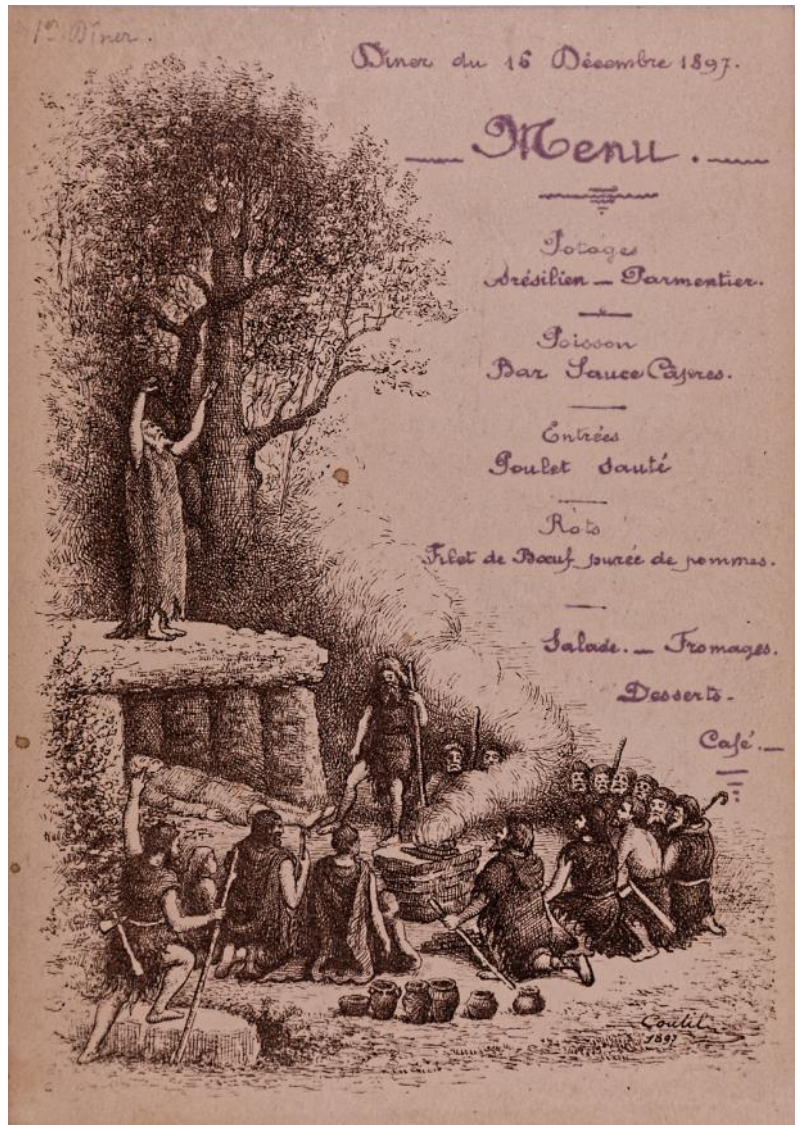 1er Dîner.
Dîner du 16 Décembre 1897.
Menu.
Potages
Brésilien — Parmentier.
Poisson
Bar Sauce Câpres.
Entrées
Poulet sauté
Rôts
Filet de Bœuf purée de pommes.
Salade. — Fromages.
Desserts.
Café.
Coutil
1897